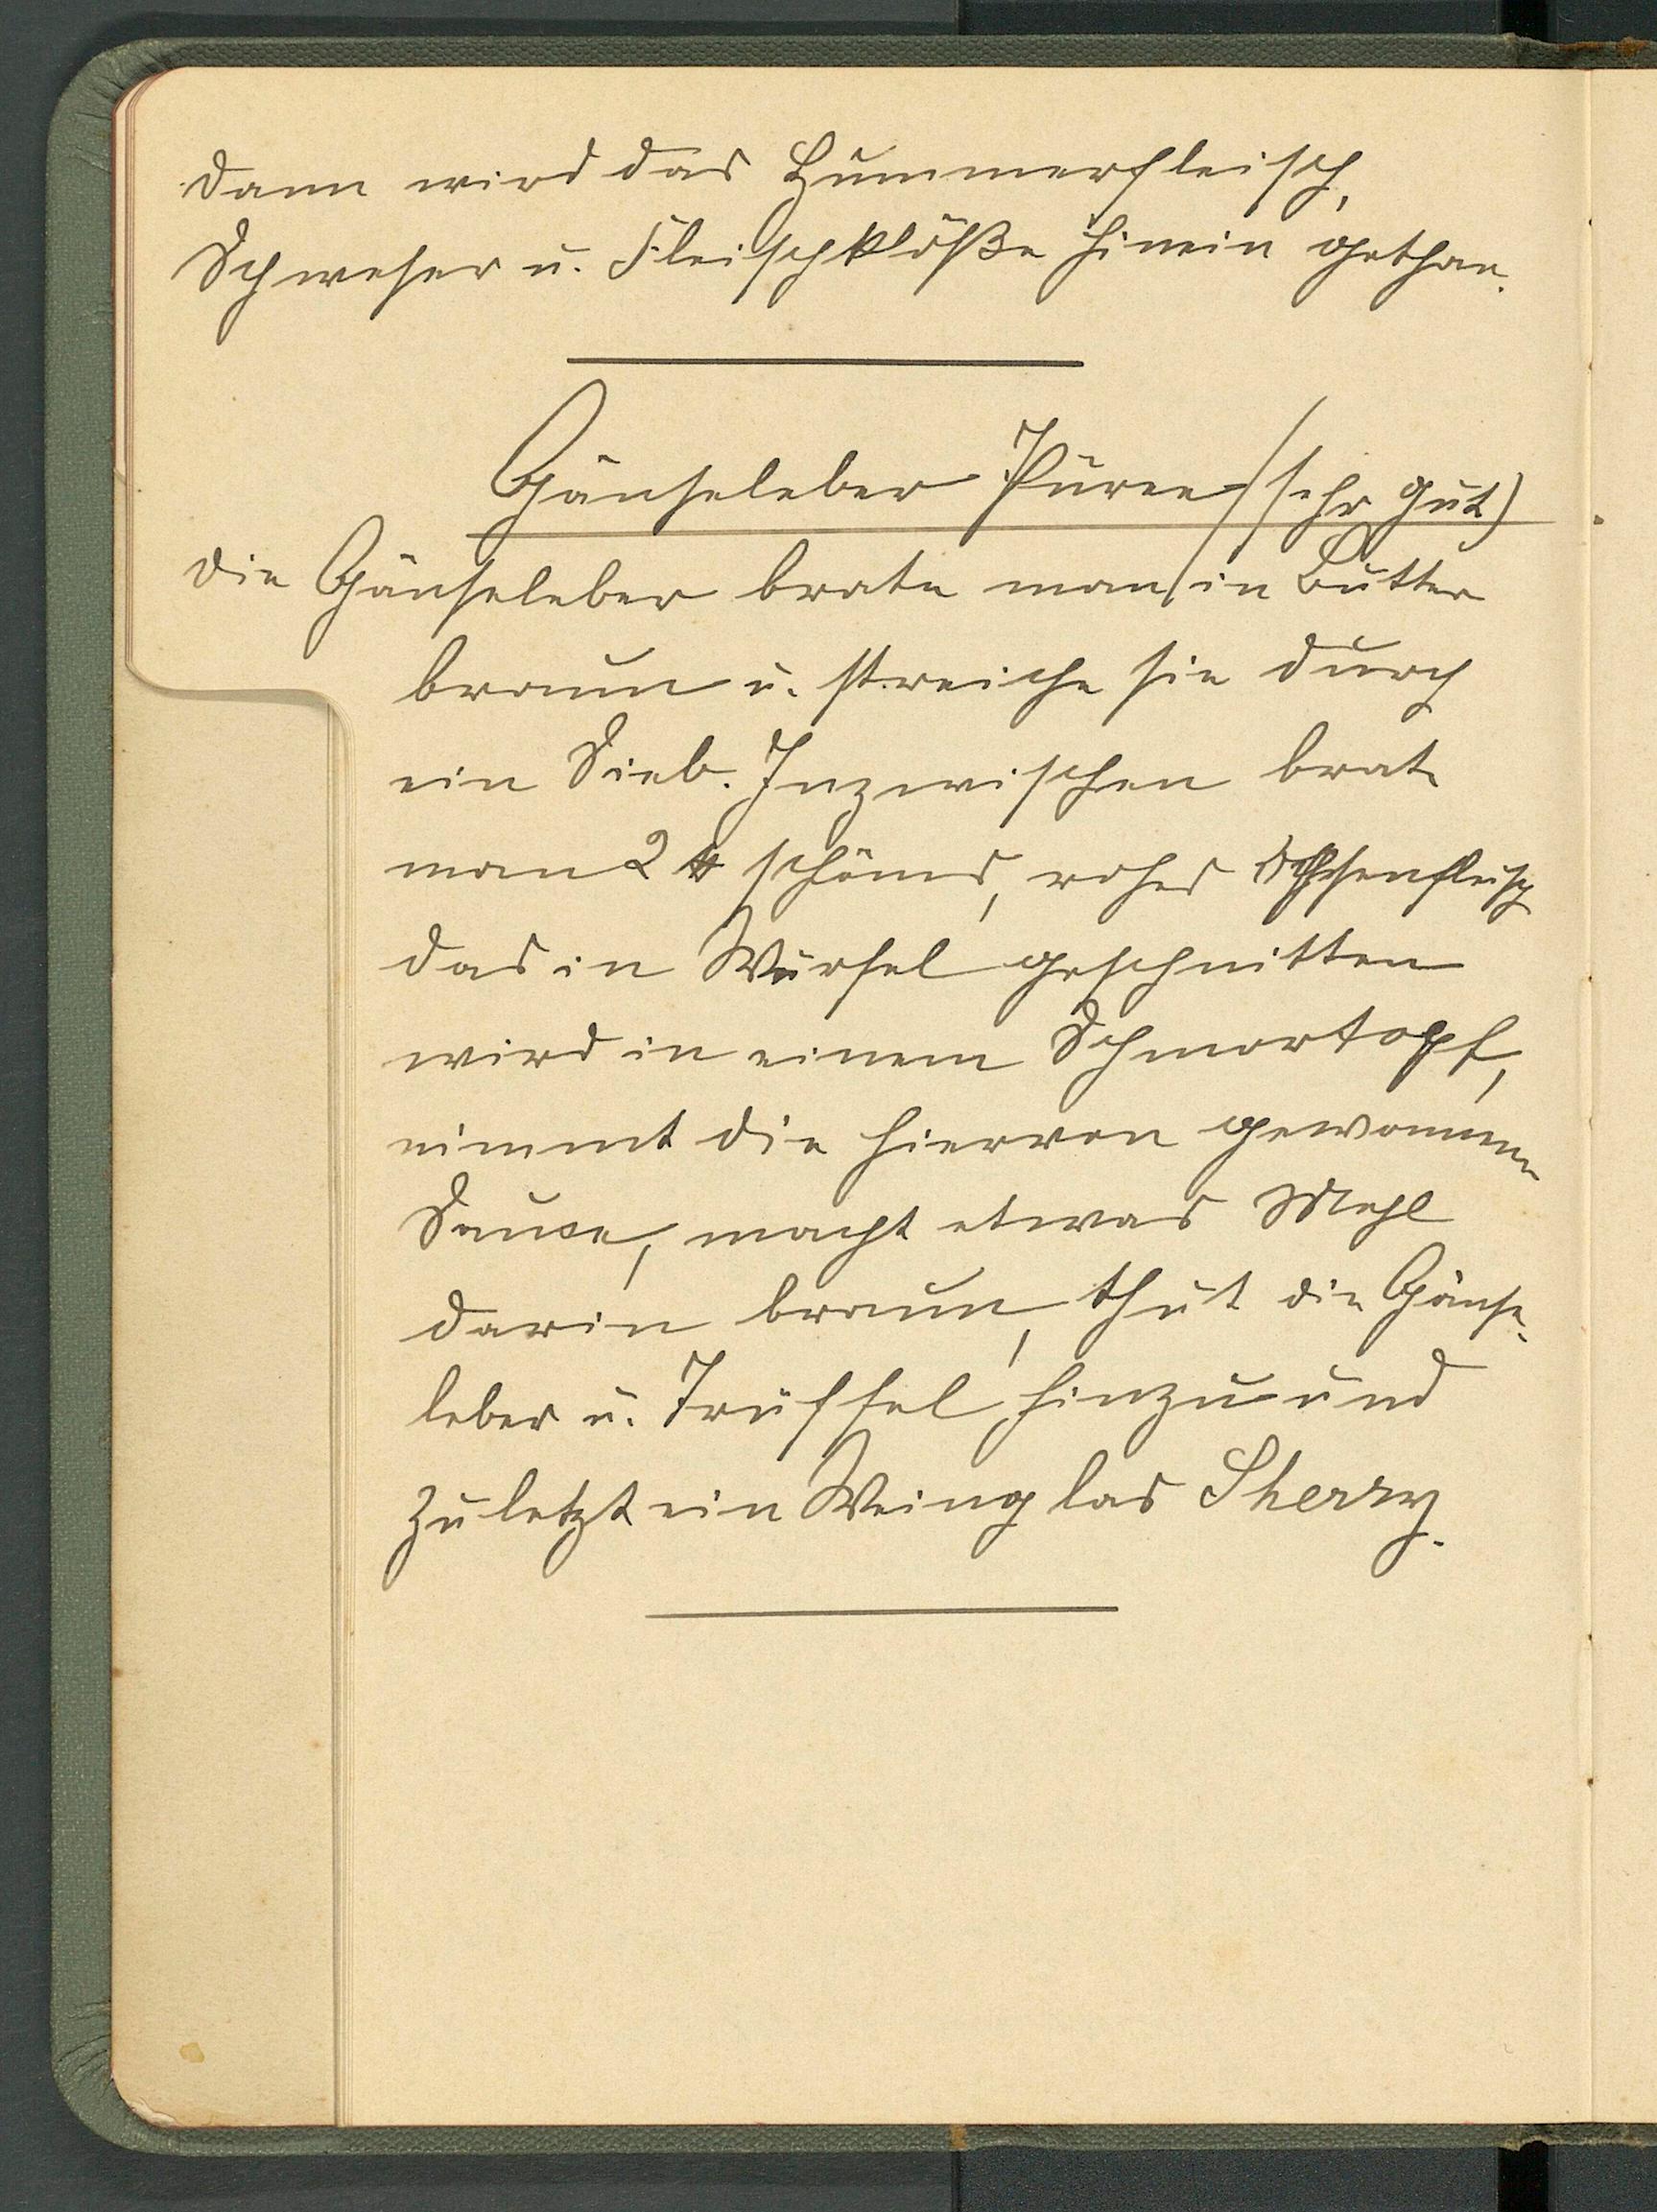 dann wird das Hummerfleisch,
Schweser u. Fleischklöße hinein gethan.
Gänseleber Püree (sehr gut)
die Gänseleber brate man in Butter
braun u. streiche sie durch
ein Sieb. Inzwischen brate
man 2 ℔ schönes, rohes Ochsenfleisch
das in Würfel geschnitten
wird in einem Schmortopf,
nimmt die hiervon gewonnene
Sauce, macht etwas Mehl
darin braun, thut die Gänse-
leber u. Trüffel hinzu und
zuletzt ein Weinglas Sherry.